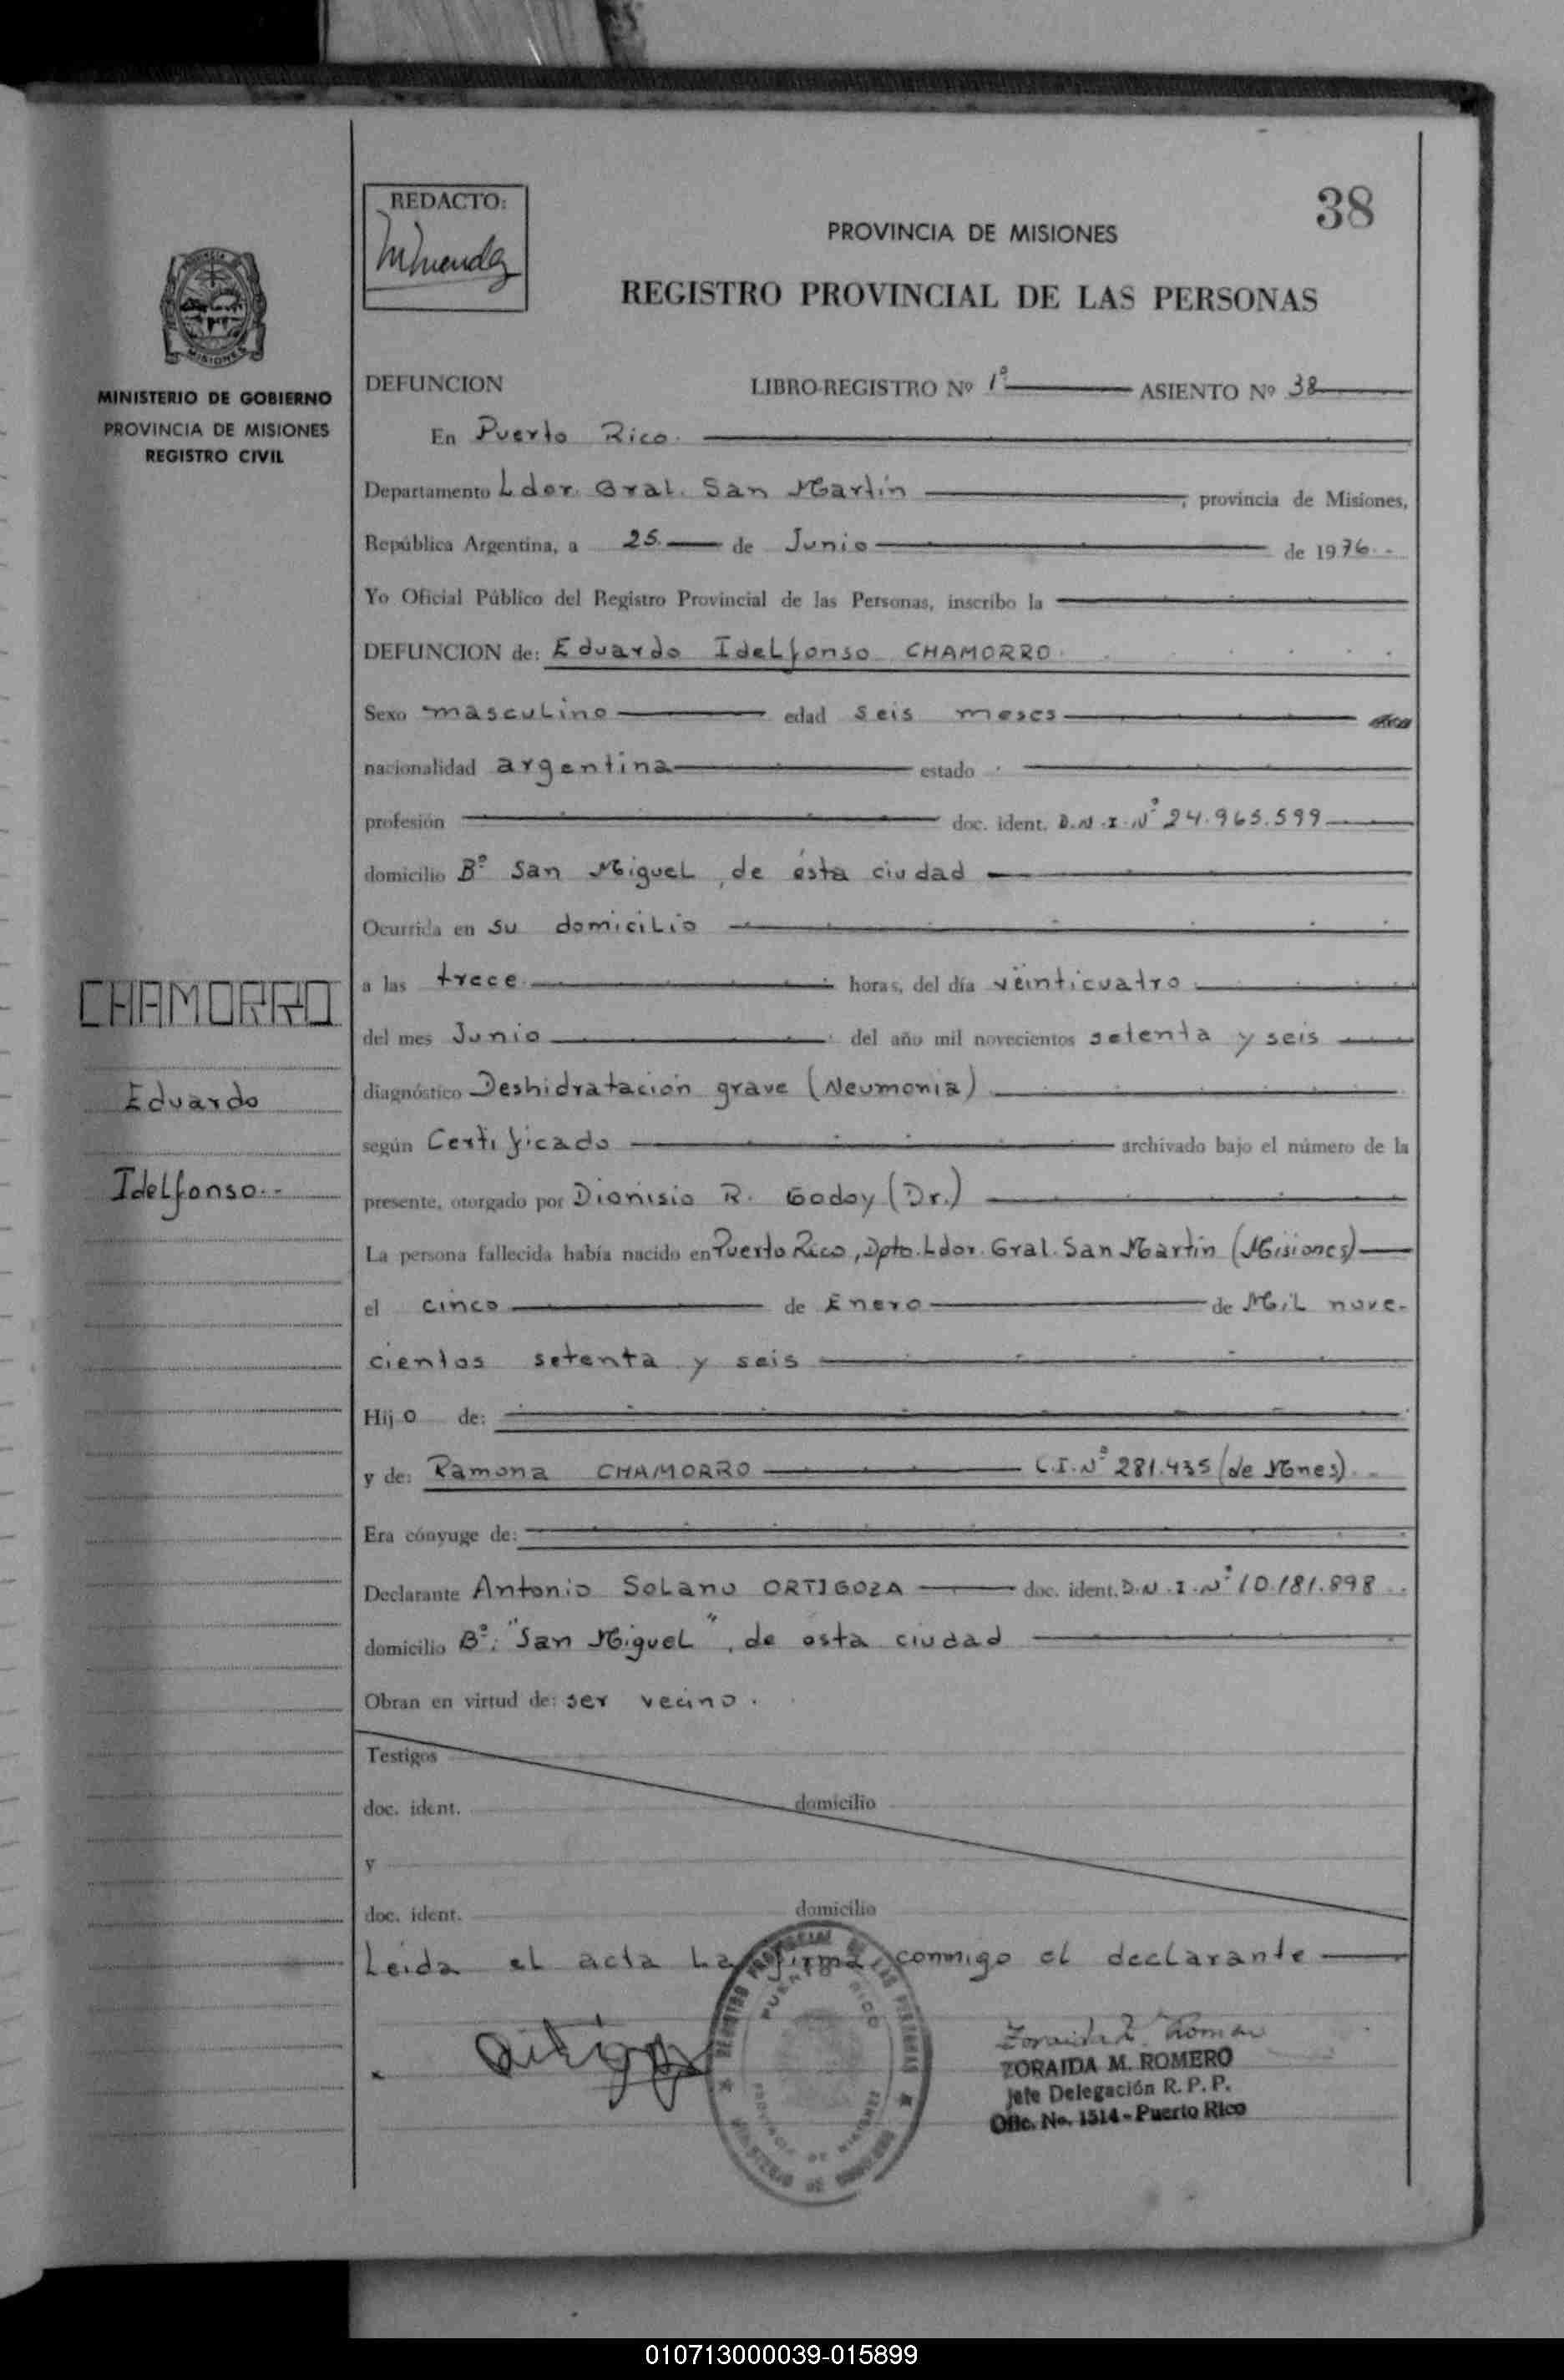 REDACTO:
38
PROVINCIA DE MISIONES
REGISTRO PROVINCIAL DE LAS PERSONAS
MISIONES
MINISTERIO DE GOBIERNO
PROVINCIA DE MISIONES
REGISTRO CIVIL
DEFUNCION LIBRO-REGISTRO Nº 1º ASIENTO Nº 38
En Puerto Rico.
Departamento Ldor. Gral. San Martín, provincia de Misiones,
República Argentina, a 25 de Junio de 1976.-
Yo Oficial Público del Registro Provincial de las Personas, inscribo la
DEFUNCION de: Eduardo Idelfonso CHAMORRO
Sexo masculino edad seis meses
nacionalidad argentina estado
profesión doc. ident. D.N.I.Nº 24.965.599
domicilio Bº San Miguel, de ésta ciudad
Ocurrida en su domicilio
a las trece horas, del día veinticuatro
del mes Junio del año mil novecientos setenta y seis
diagnóstico Deshidratación grave (Neumonia)
según Certificado archivado bajo el número de la
presente, otorgado por Dionisio R. Godoy (Dr.)
La persona fallecida había nacido en Puerto Rico, Dpto. Ldor. Gral. San Martín (Misiones)
el cinco de Enero de Mil nove-
cientos setenta y seis
Hijo de:
y de: Ramona CHAMORRO C.I.Nº 281.435 (de Mnes).
Era cónyuge de:
Declarante Antonio Solano ORTIGOZA doc. ident. D.N.I.Nº 10.181.898
domicilio Bº: "San Miguel", de ésta ciudad
Obran en virtud de: ser vecino.
Testigos
doc. ident. domicilio
y
doc. ident. domicilio
Leida el acta la firma conmigo el declarante
CHAMORRO
Eduardo
Idelfonso.-
REGISTRO PROVINCIAL DE LAS PERSONAS
PUERTO RICO
PROVINCIA DE MISIONES
MINISTERIO DE GOBIERNO
ZORAIDA M. ROMERO
Jefe Delegación R. P. P.
Ofic. No. 1514 - Puerto Rico
010713000039-015899